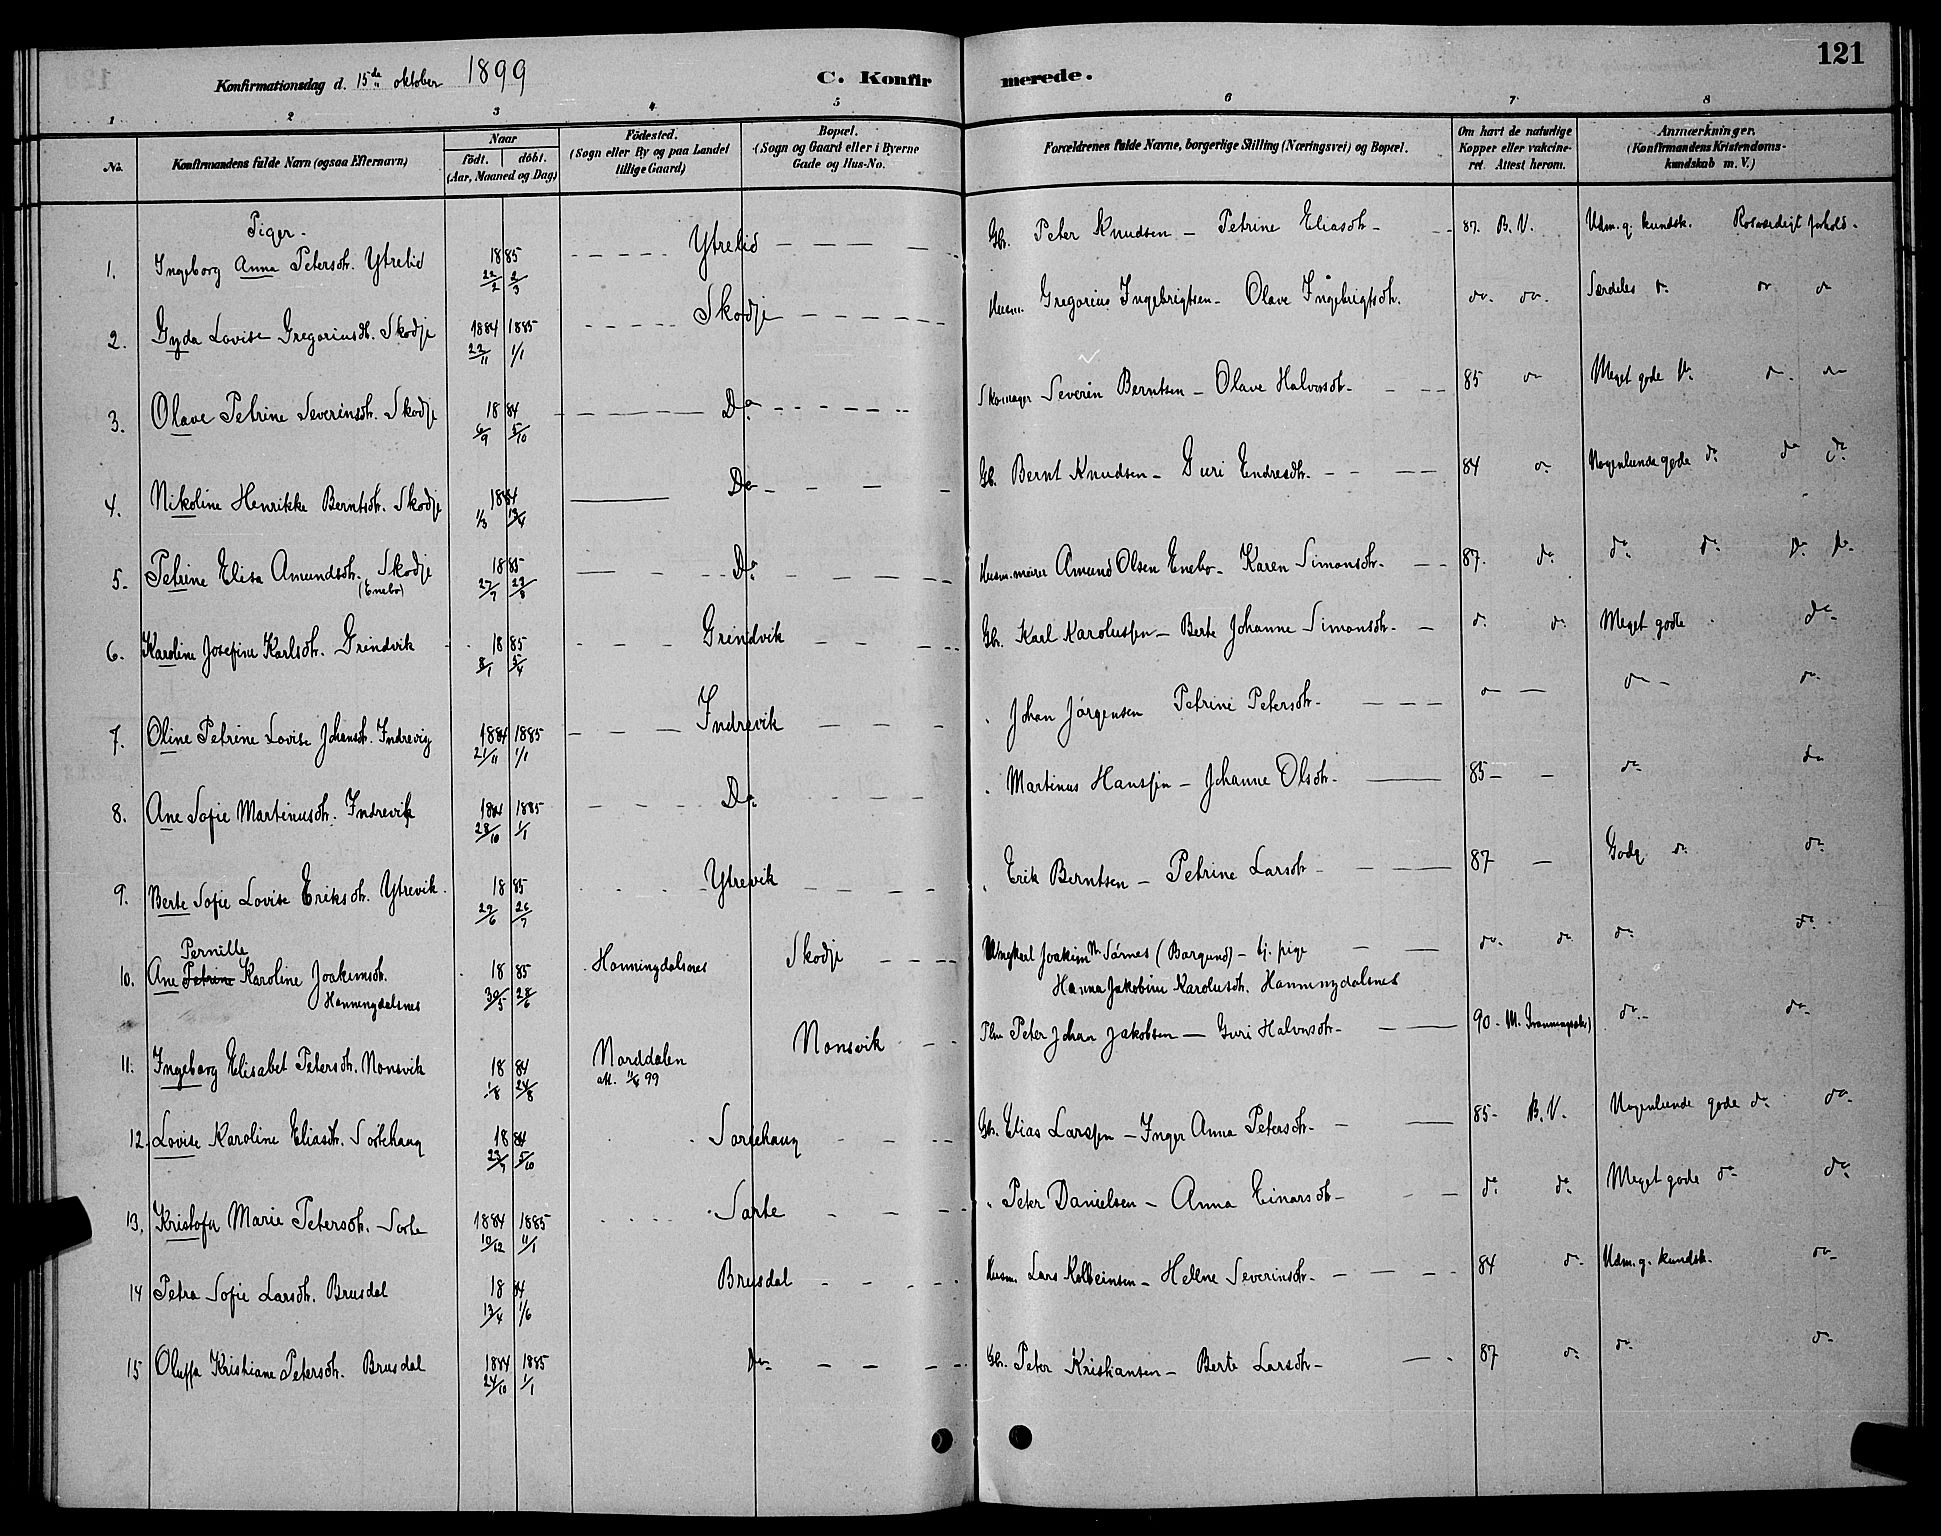 Konfirmationsdag d. 15de oktober 1899 C. Konfirmerede. 121
1 2 3 4 5 6 7 8
No. Konfirmandens fulde Navn (ogsaa Efternavn) Naar født. døbt. (Aar, Maaned og Dag) Fødested. (Sogn eller By og paa Landet tillige Gaard) Bopæl. (Sogn og Gaard eller i Byerne Gade og Hus-No. Forældrenes fulde Navne, borgerlige Stilling (Næringsvei) og Bopæl. Om havt de naturlige Kopper eller vakcineret. Attest herom. Anmærkninger. (Konfirmandens Kristendomskundskab m. V.)
Piger.
1. Ingeborg Anna Petersdtr. Ytrelid 1885 22/2 2/3 Ytrelid Gbr. Peter Knudsen – Petrine Eliasdtr. 87. B. V. Udm. g. kundsk.
2. Gyda Lovise Gregoriusdt. Skodje 1884 22/11 1885 1/1 Skodje Husm. Gregorius Ingebrigtsen – Olave Ingebrigtsdtr. do. do. Særdeles do do do
3. Olave Petrine Severinsdtr. Skodje 1884 6/9 5/10 Do Skomager Severin Berntsen – Olave Halvorsdtr. 85 do Meget gode do do do
4. Nikoline Henrikke Berntsdtr. Skodje 1884 1/3 13/4 Do Gb. Bernt Knudsen – Guri Endresdtr. 84 do Nogenlunde gode do do do
5. Petrine Elisa Amundsdtr. Skodje (Enebo) 1885 27/7 23/8 Do Amund Olsen Enebo – Karen Simonsdtr. 87. do do do do do
6. Karoline Josefine Karlsdtr. Grindvik 1885 8/1 5/4 Grindvik Gbr. Karl Karolussen – Berte Johanne Simonsdtr. do do Meget gode do
7. Oline Petrine Lovise Johansdt. Indrevig 1884 21/11 1885 1/1 Indrevik " Johan Jørgensen Petrine Petersdtr. do – do – do
8. Ane Sofie Martinusdtr. Indrevik 1884 28/10 1885 1/1 Do " Martinus Hanssen – Johanne Olsdtr. 85 – – do do
9. Berte Sofie Lovise Eriksdtr. Ytrevik. 1885 29/6 26/7 Ytrevik " Erik Berntsen – Petrine Larsdtr 87 – Gode do do
Pernille
10. Ane Petrine Karoline Joakimsdt. 1885 30/5 28/6 Honningdalsnes Skodje Ungkarl Joakim Sørnes (Borgund) – tj. pige do. do do do
Honningdalsnes Hanna Jakobine Karolusdt. Honningdalsnes
11. Ingeborg Elisabet Petersdt. Nonsvik 1884 1/8 24/8 Norddalen Nonsvik Peter Johan Jakobsen – Guri Halvorsdtr. 90 – do do
att. 99
12. Lovise Karoline Eliasdt. Sortehaug 1884 23/7 5/10 Sortehaug Gbr. Elias Larssen – Inger Anna Petersdtr. 85 – B. V. Nogenlunde gode do do
13. Marie Petersdt. Sorte 1884 10/12 1885 11/1 Sorte " Peter Danielsen – Anna Einarsdtr. do do Meget gode do do
14 Petra Sofie Larsdt. Brusdal 1884 13/4 1/6 Brusdal Husm. Lars Kolbeinsen – Hellne Severinsdtr. 84 do Udm. g. kundsk. do
15 Oluffa Kristiane Petersdt. Brusdal 1884 24/10 1885 1/1 Do Gbr. Peter Kristiansen – Berte Larsdtr. 87 do do do